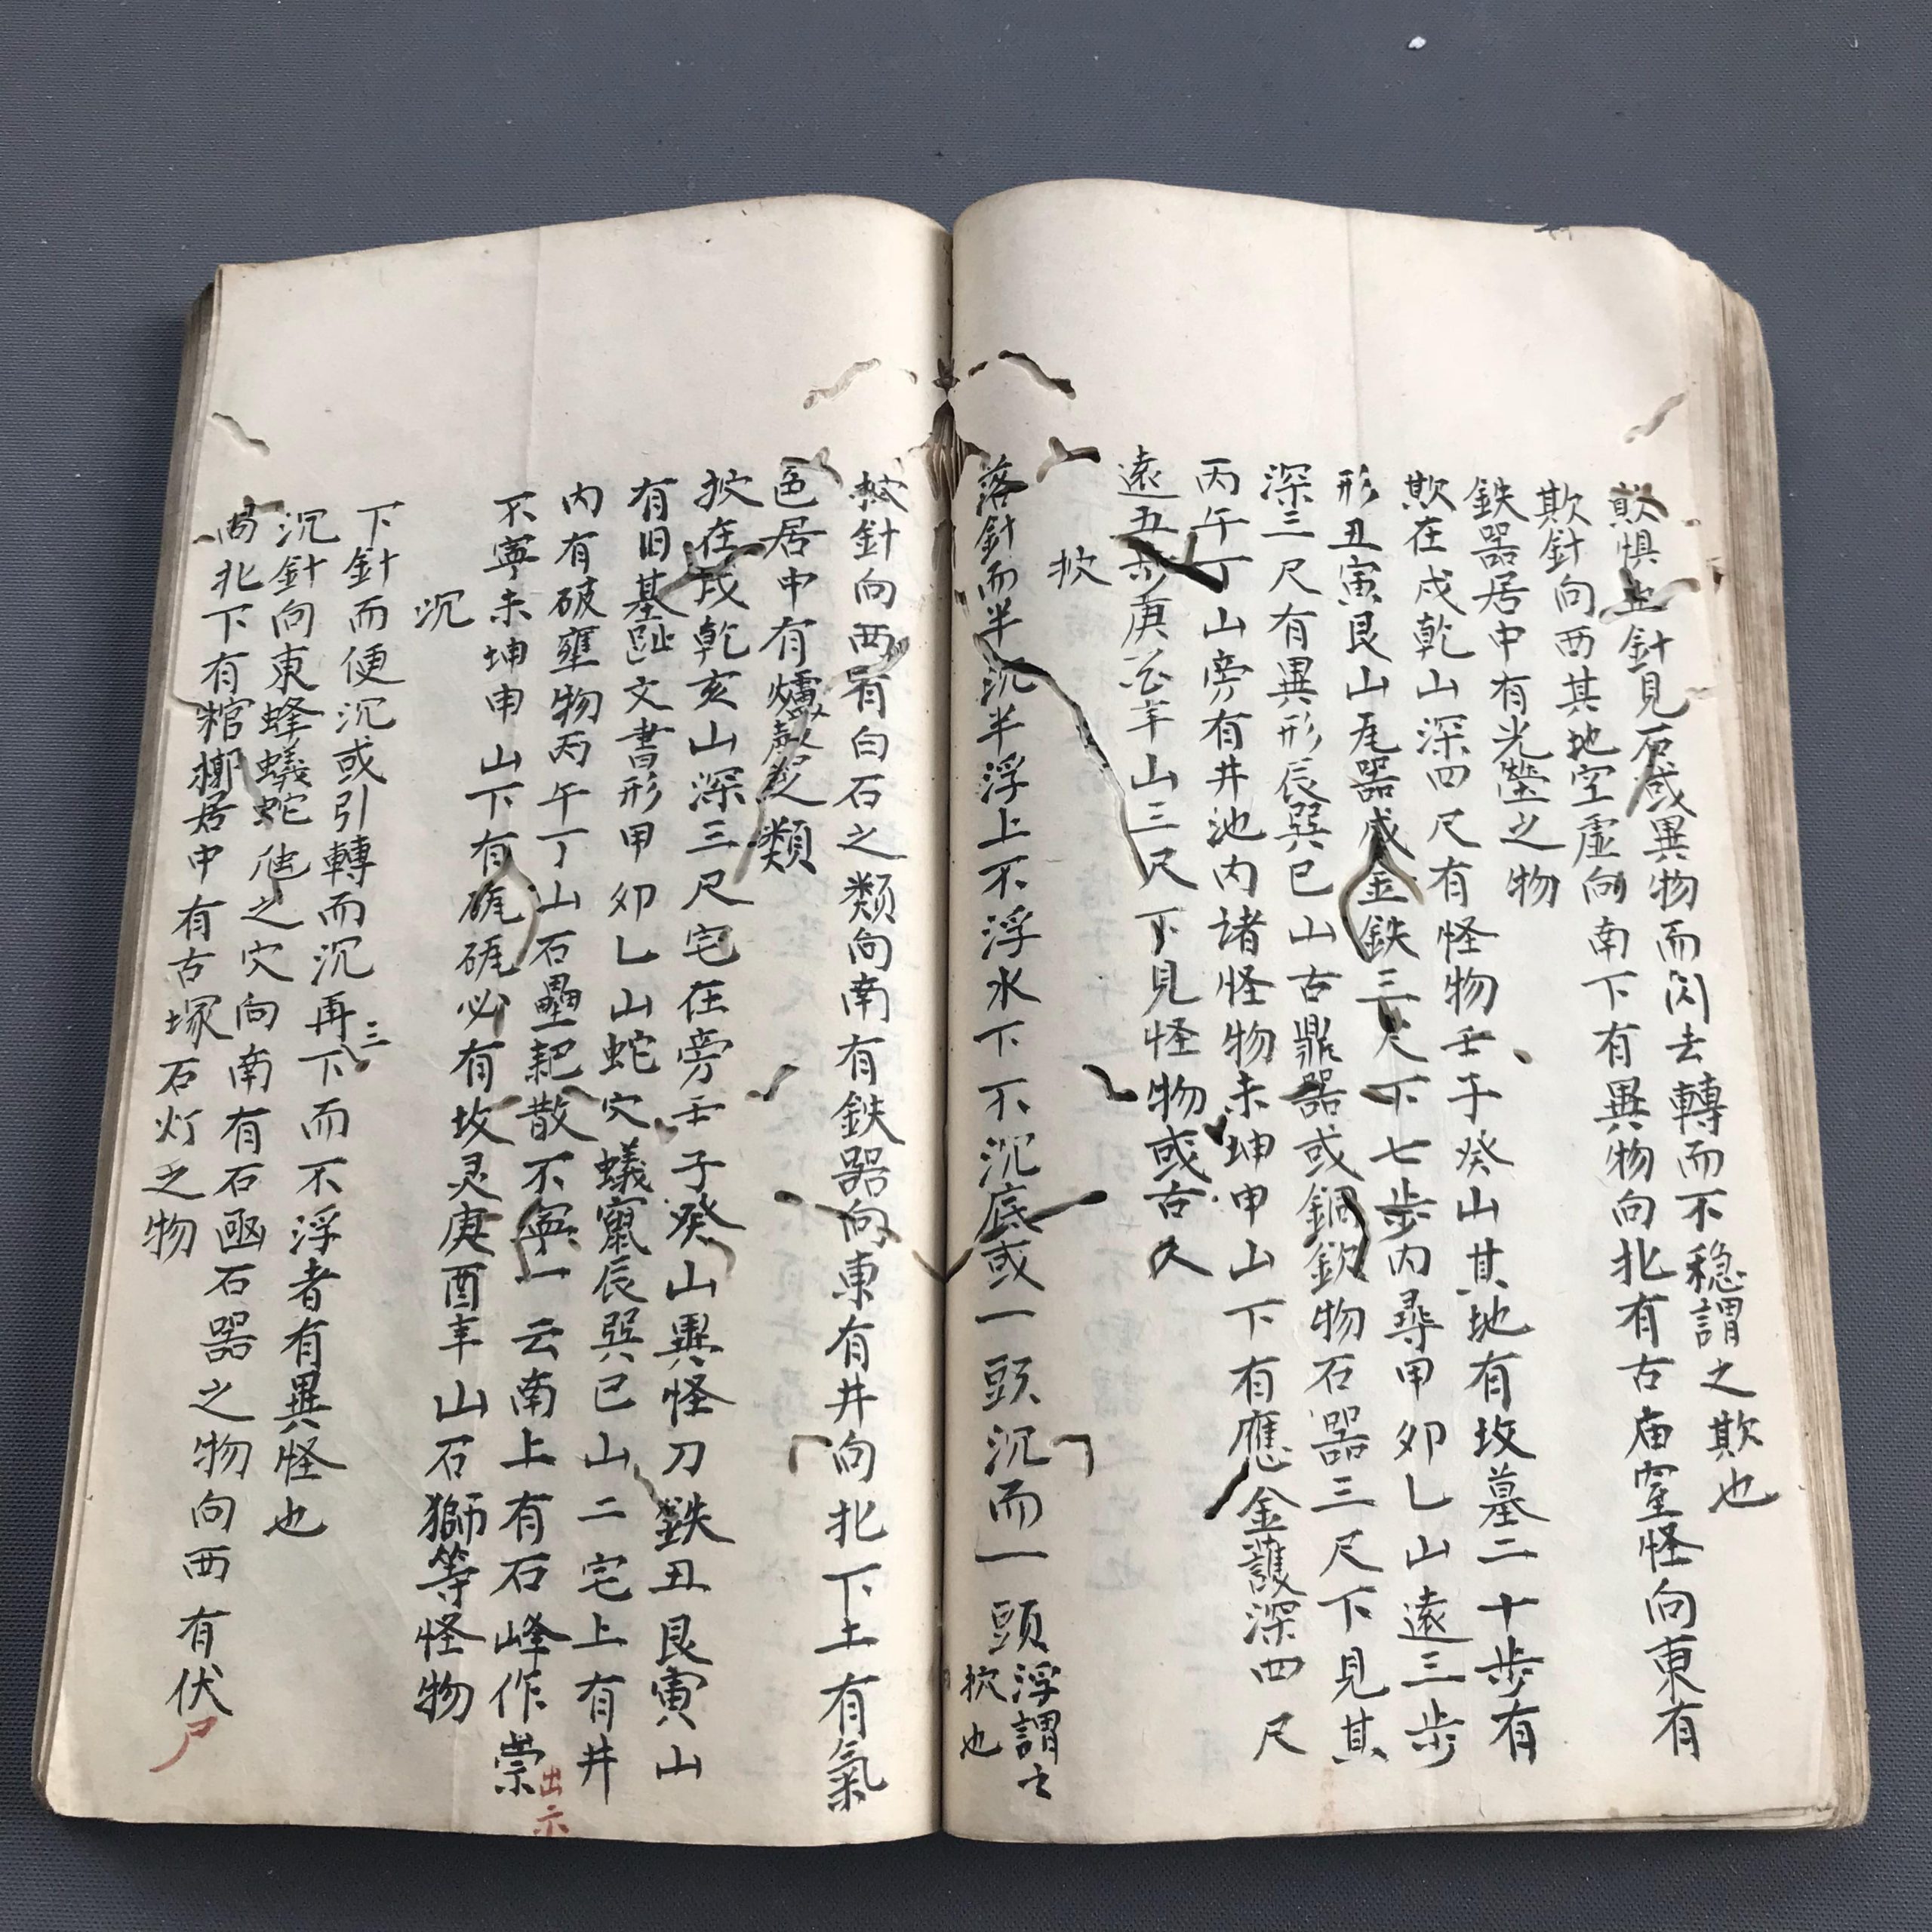 欺惧也針見石或異物而閃去轉而不穏謂之欺也
欺針向西其地空虛向南下有異物向北有古庙窒怪向東有
鉄器居中有光瑩之物
欺在戌乾山深四尺有怪物壬子癸山其地有坟墓二十步有
形丑寅艮山尾器成金鉄三尺下七步內尋甲卯乚山遠三步
深三尺有異形辰巽巳山古鼎器或銅欽物石器三尺下見其
丙午丁山旁有井池内諸怪物未坤申山下有應金護深四尺
遠五步庚酉辛山三尺下見怪物或古久
㧒
落針而半沉半浮上不浮水下不沉底或一頭沉而一頭浮謂之㧒也
㧒針向西有白石之類向南有鉄器向東有井向北下土有氣
色居中有爐磬之類
㧒在戌乾亥山深三尺宅在旁壬子癸山異怪刀鉄丑艮寅山
有旧基趾文書形甲卯乚山蛇穴蟻窠辰巽已山二宅上有井
内有破壅物丙午丁山石壘耙散不寧一云南上有石峰作祟
出示
不寧未坤申山下有硊砸必有坟灵庚酉辛山石獅等怪物
沉
下針而便沉或引轉而沉再三下而不浮者有異怪也
沉針向東蜂蟻蛇虺之穴向南有石凾石器之物向西有伏尸
向北下有棺槨居中有古塚石灯之物